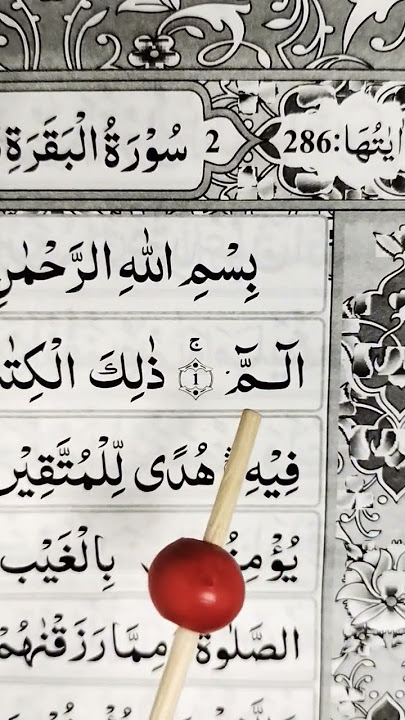 اٰیٰتُهَا:286 2 سُوْرَةُ الْبَقَرَةِ
بِسْمِ اللّٰهِ الرَّحْمٰنِ
الٓـمّٓ ۚ ﴿1﴾ ذٰلِكَ
فِيْهِ ۛ هُدًى لِّلْمُتَّقِيْنَ
بِالْغَيْبِ
الصَّلٰوةَ مِمَّا رَزَقْنٰهُمْ